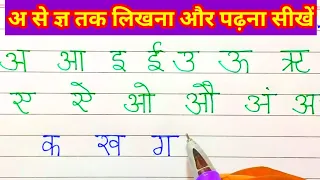 अ से ज्ञ तक लिखना और पढ़ना सीखें
अ आ इ ई उ ऊ ऋ
ए ऐ ओ औ अं अ
क ख ग